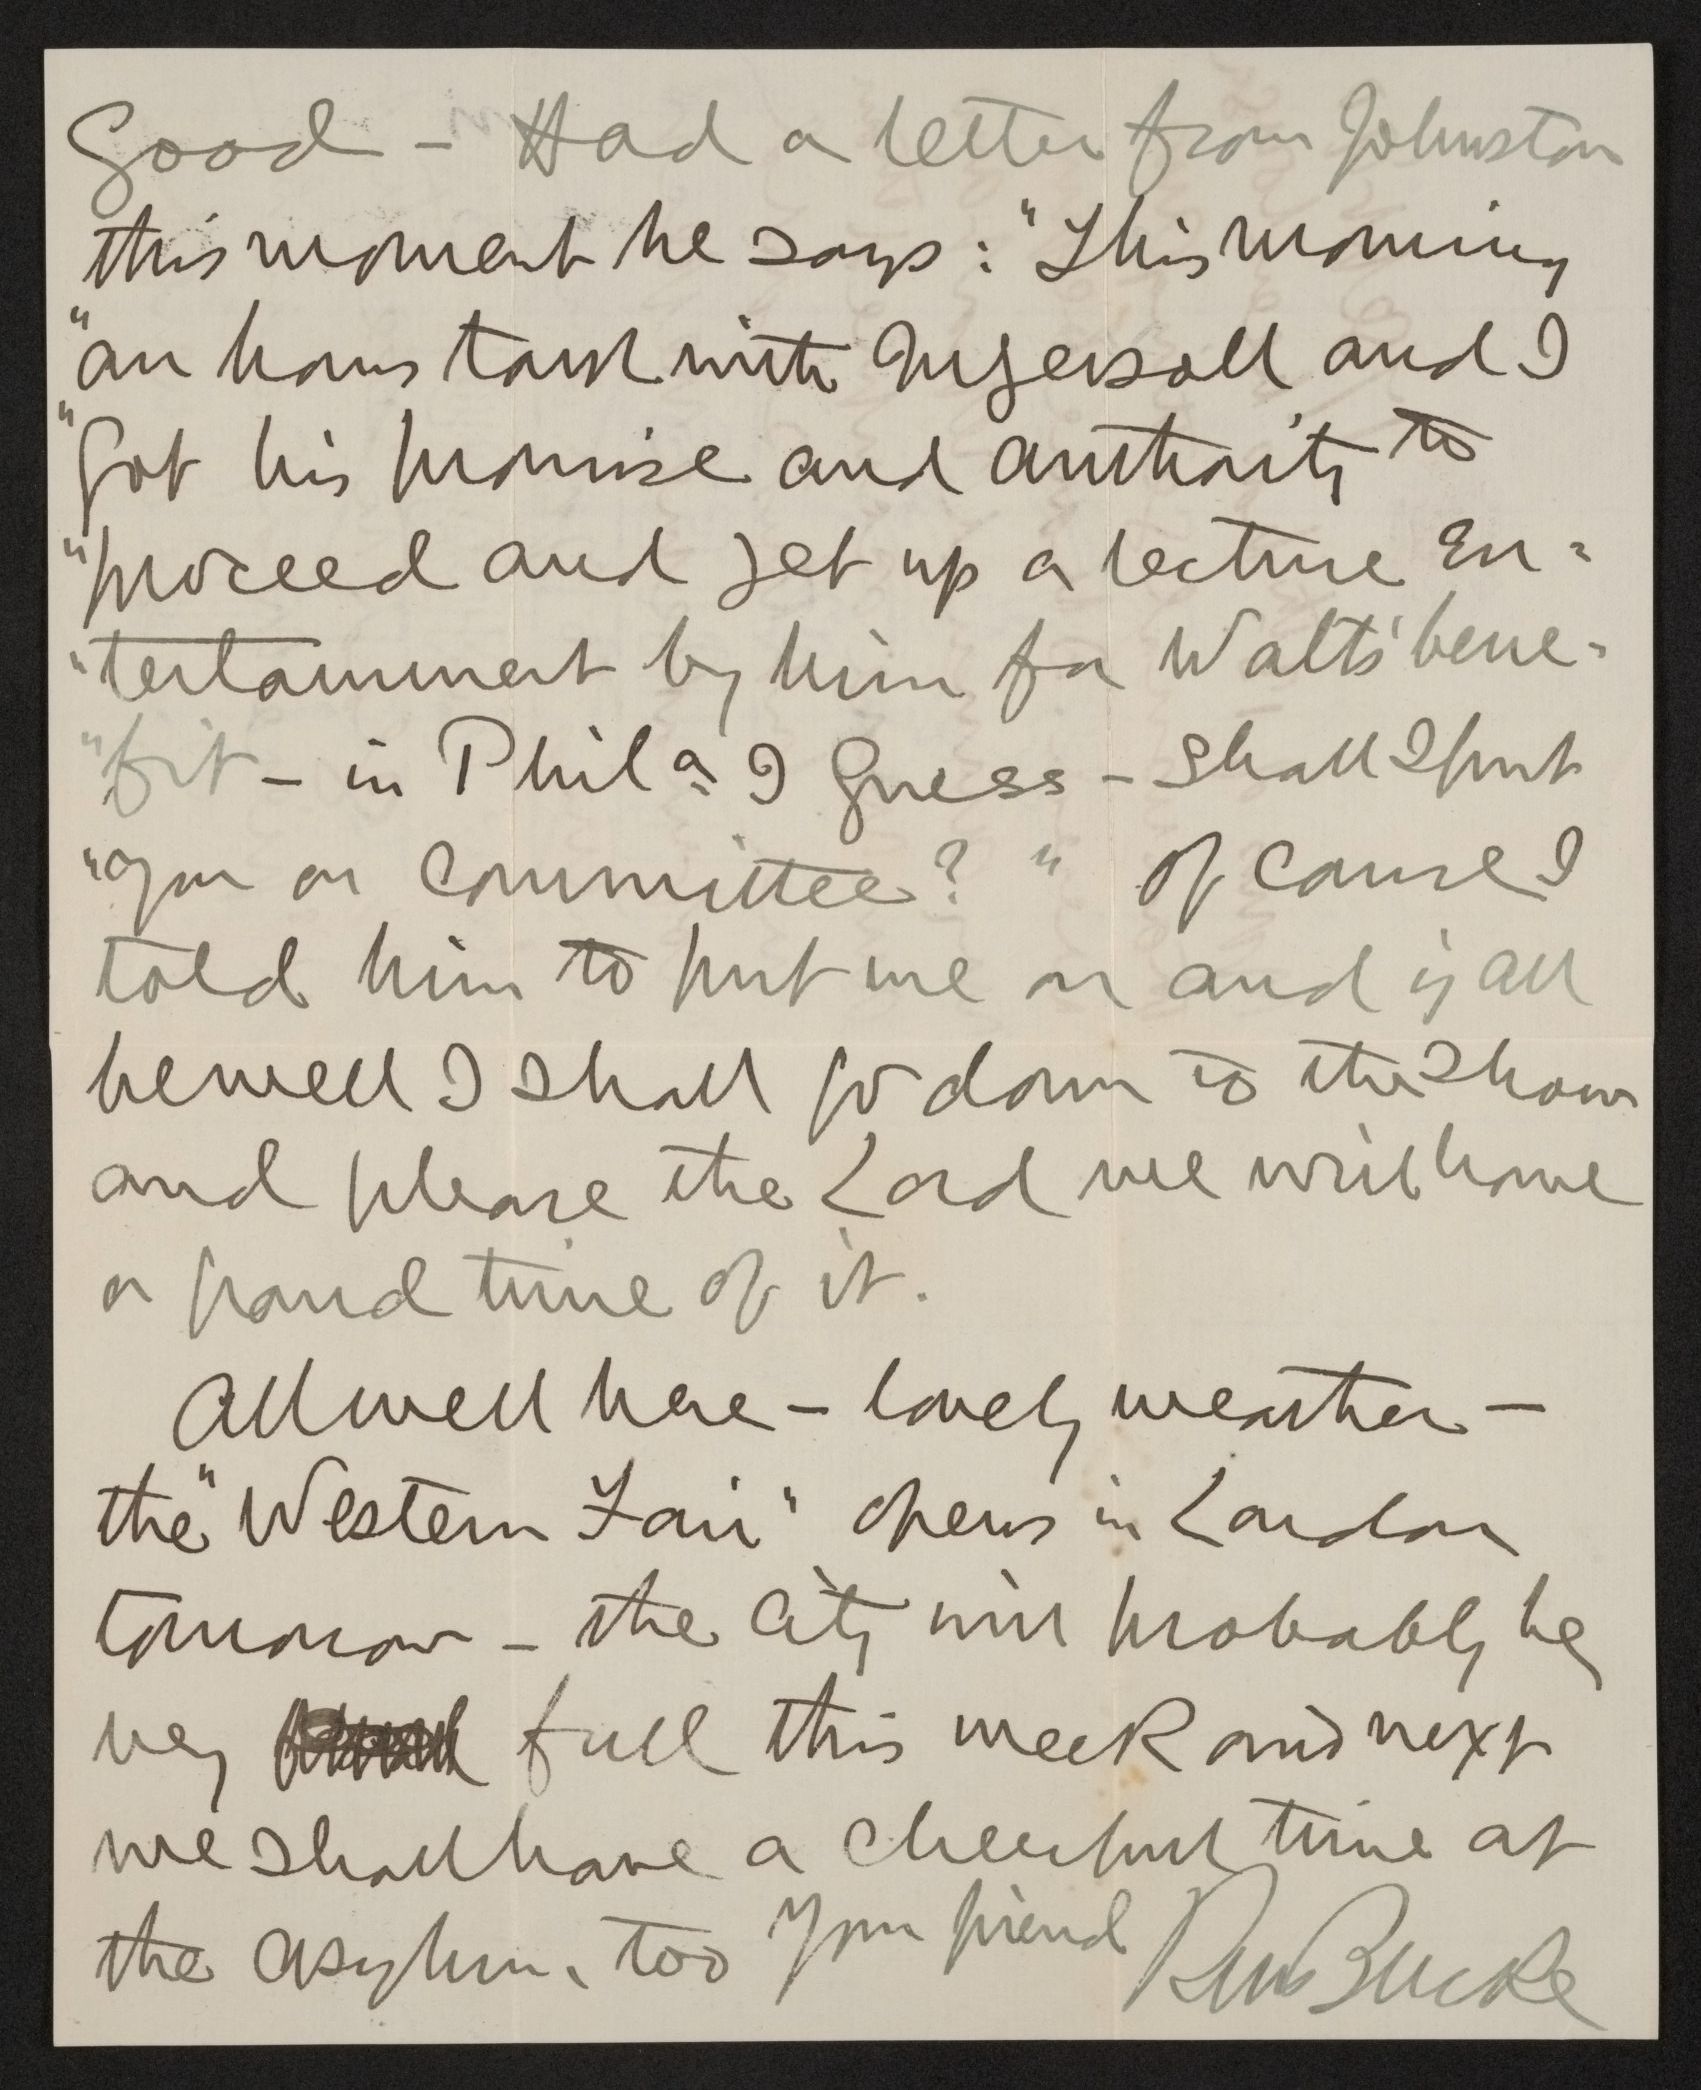 Good – Had a letter from Johnston
this moment he says: "This morning
"an hours talk with Ingersoll and I
"got his promise and authority to
"proceed and get up a lecture En-
"tertainment by him for Walts' bene-
"fit – in Phila I guess – Shall I put
"you on Committee?" Of course I
told him to put me on and if all
be well I shall go down to the show
and please the Lord we will have
a grand time of it.
All well here – lovely weather –
the "Western Fair" opens in London
tomorrow – the City will probably be
very full this week and next
we shall have a cheerful time at
the asylum, too Your friend RM Bucke